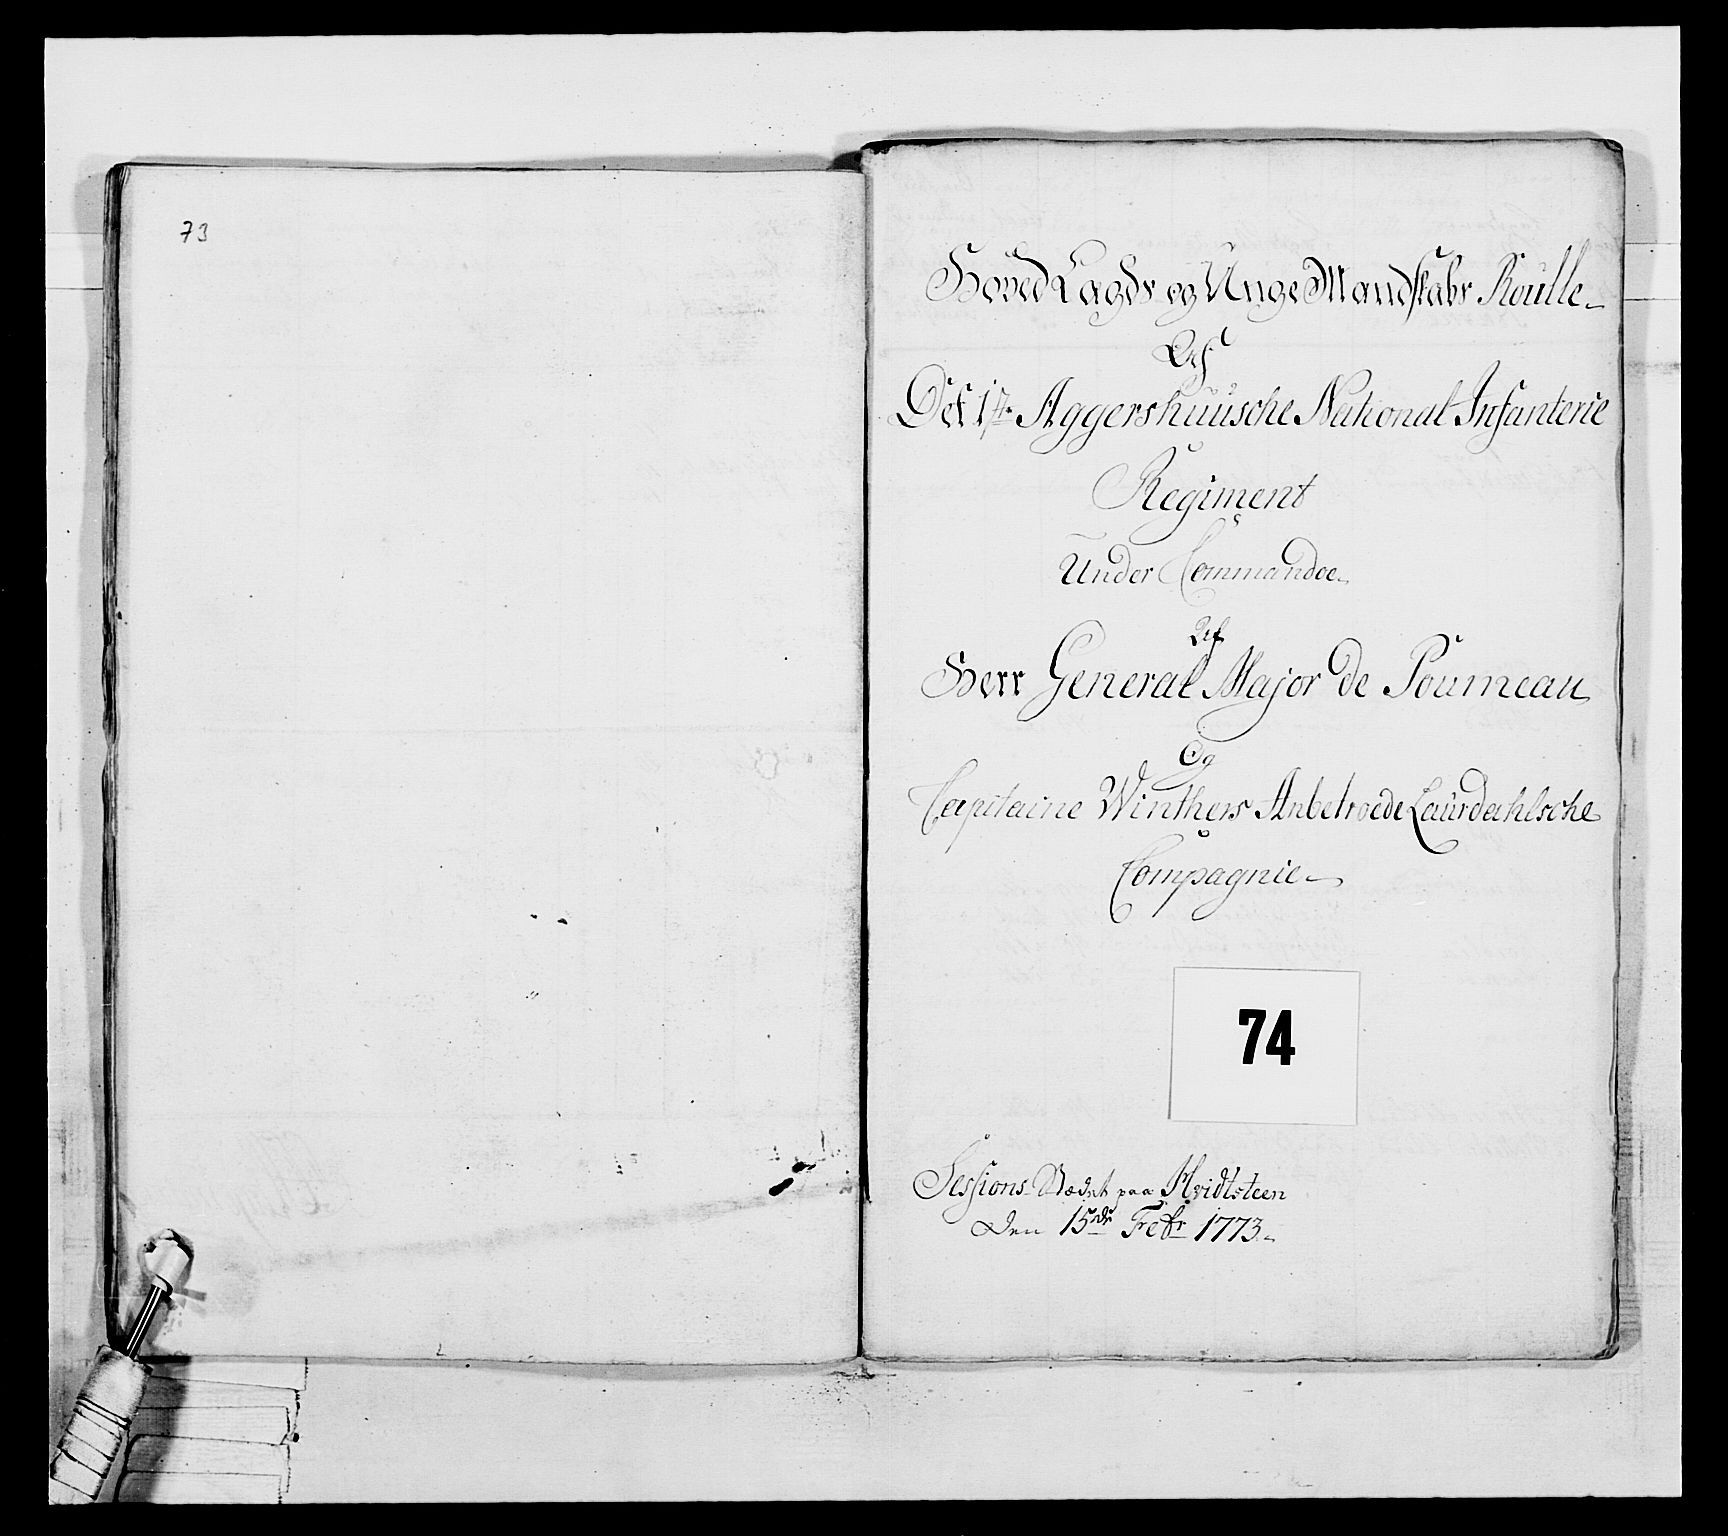 73
Hoved Lægds og Unge Mandskabs Roulle
Af
Det 1te Aggershuusche National Infanterie
Regiment
Under Commandoe
Af
Herr General Major de Poumeau
Og
Capitaine Winthers Anbetroede Laurdahlsche
Compagnie
74
Sessions Stædet paa Hvidtsteen
Den 15de Febr 1773.